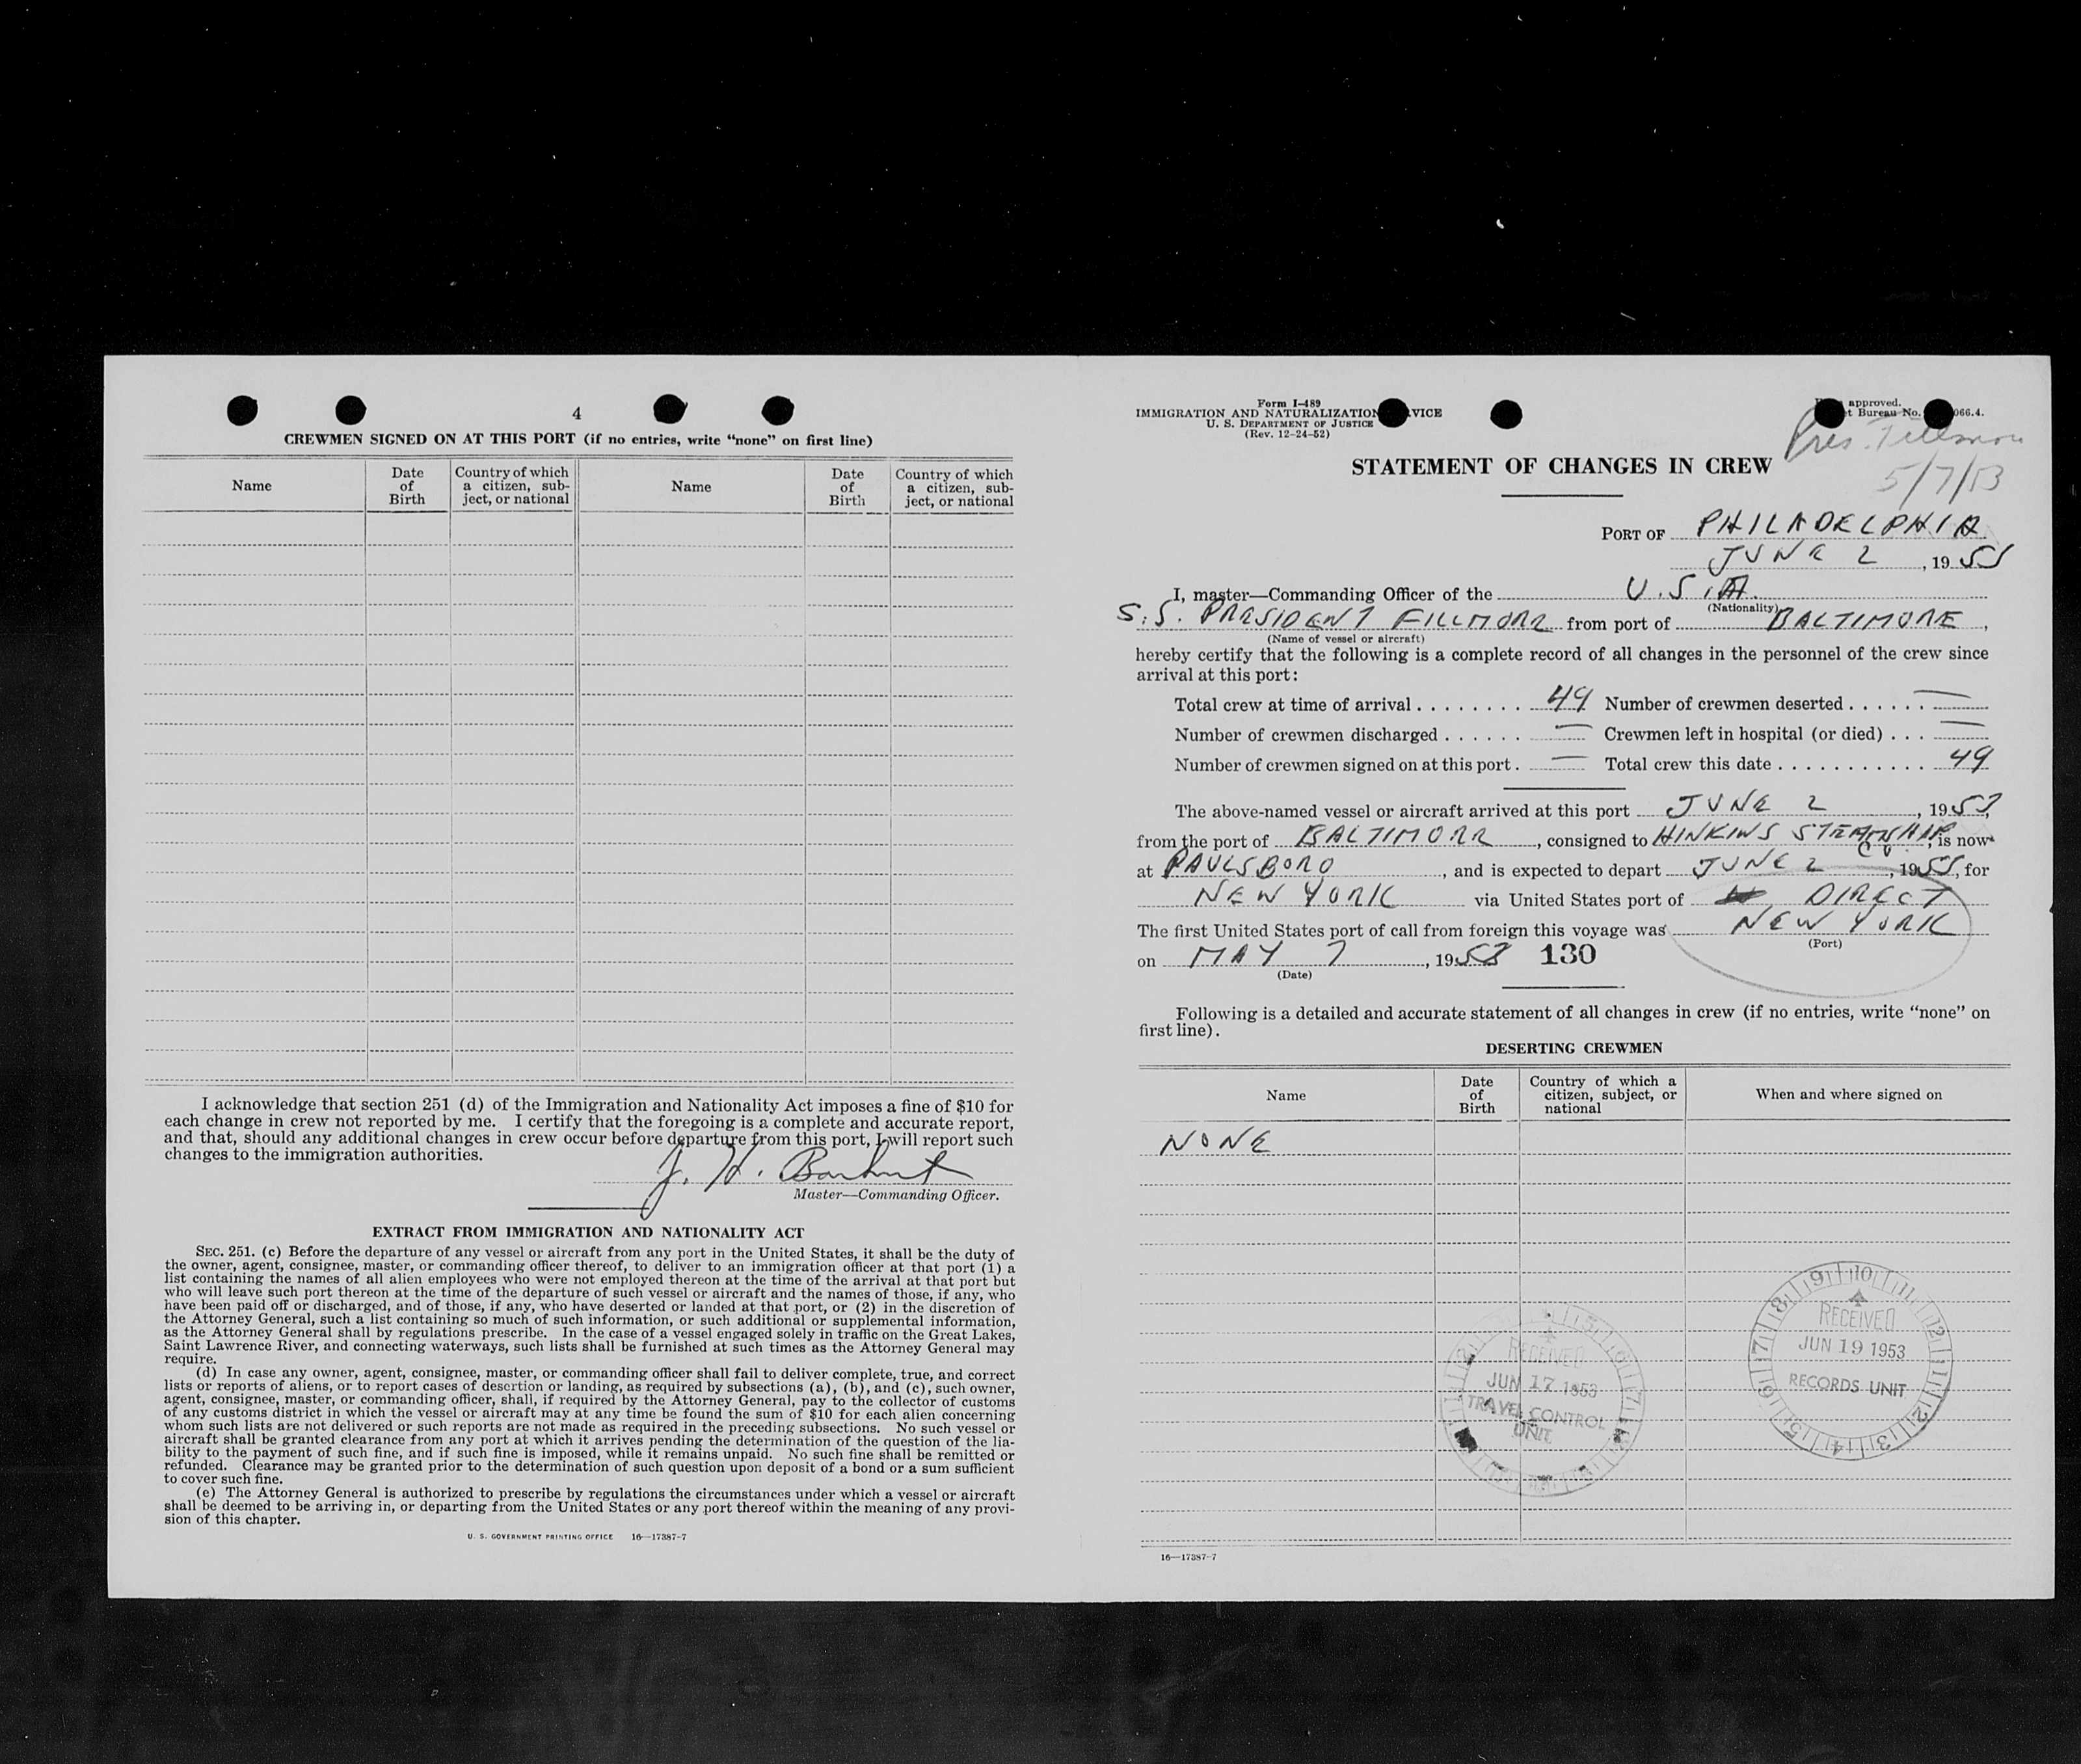 4
CREWMEN SIGNED ON AT THIS PORT (if no entries, write “none” on first line)
Name
Date of Birth
Country of which a citizen, sub-ject, or national
Name
Date of Birth
Country of which a citizen, sub-ject, or national
I acknowledge that section 251 (d) of the Immigration and Nationality Act imposes a fine of $10 for
each change in crew not reported by me. I certify that the foregoing is a complete and accurate report,
and that, should any additional changes in crew occur before departure from this port, I will report such
changes to the immigration authorities.
J. H.
Master—Commanding Officer.
EXTRACT FROM IMMIGRATION AND NATIONALITY ACT
SEC. 251. (c) Before the departure of any vessel or aircraft from any port in the United States, it shall be the duty of
the owner, agent, consignee, master, or commanding officer thereof, to deliver to an immigration officer at that port (1) a
list containing the names of all alien employees who were not employed thereon at the time of the arrival at that port but
who will leave such port thereon at the time of the departure of such vessel or aircraft and the names of those, if any, who
have been paid off or discharged, and of those, if any, who have deserted or landed at that port, or (2) in the discretion of
the Attorney General, such a list containing so much of such information, or such additional or supplemental information,
as the Attorney General shall by regulations prescribe. In the case of a vessel engaged solely in traffic on the Great Lakes,
Saint Lawrence River, and connecting waterways, such lists shall be furnished at such times as the Attorney General may
require.
(d) In case any owner, agent, consignee, master, or commanding officer shall fail to deliver complete, true, and correct
lists or reports of aliens, or to report cases of desertion or landing, as required by subsections (a), (b), and (c), such owner,
agent, consignee, master, or commanding officer, shall, if required by the Attorney General, pay to the collector of customs
of any customs district in which the vessel or aircraft may at any time be found the sum of $10 for each alien concerning
whom such lists are not delivered or such reports are not made as required in the preceding subsections. No such vessel or
aircraft shall be granted clearance from any port at which it arrives pending the determination of the question of the lia-
bility to the payment of such fine, and if such fine is imposed, while it remains unpaid. No such fine shall be remitted or
refunded. Clearance may be granted prior to the determination of such question upon deposit of a bond or a sum sufficient
to cover such fine.
(e) The Attorney General is authorized to prescribe by regulations the circumstances under which a vessel or aircraft
shall be deemed to be arriving in, or departing from the United States or any port thereof within the meaning of any provi-
sion of this chapter.
U. S. GOVERNMENT PRINTING OFFICE 16—17387-7
Form I-489
IMMIGRATION AND NATURALIZATION VICE
U. S. DEPARTMENT OF JUSTICE
(Rev. 12-24-52)
approved.
t Bureau No. 066.4.
Pres.
5/7/53
STATEMENT OF CHANGES IN CREW
PORT OF PHILADELPHIA
JUNE 2, 1953
I, master—Commanding Officer of the U.S.A.
(Nationality)
S.S. PRESIDENT FILLMORE from port of BALTIMORE,
(Name of vessel or aircraft)
hereby certify that the following is a complete record of all changes in the personnel of the crew since
arrival at this port:
Total crew at time of arrival ........ 49 Number of crewmen deserted ...... —
Number of crewmen discharged ...... — Crewmen left in hospital (or died) ... —
Number of crewmen signed on at this port. — Total crew this date ........... 49
The above-named vessel or aircraft arrived at this port JUNE 2, 1953,
from the port of BALTIMORE, consigned to HINKINS STEAMSHIP CO, is now
at PAULSBORO, and is expected to depart JUNE 2, 1953, for
NEW YORK via United States port of DIRECT
The first United States port of call from foreign this voyage was NEW YORK
(Port)
on MAY 7, 1953 130
(Date)
Following is a detailed and accurate statement of all changes in crew (if no entries, write “none” on
first line).
DESERTING CREWMEN
Name
Date of Birth
Country of which a citizen, subject, or national
When and where signed on
NONE
RECEIVED
JUN 17 1953
TRAVEL CONTROL
UNIT
RECEIVED
JUN 19 1953
RECORDS UNIT
16—17387-7